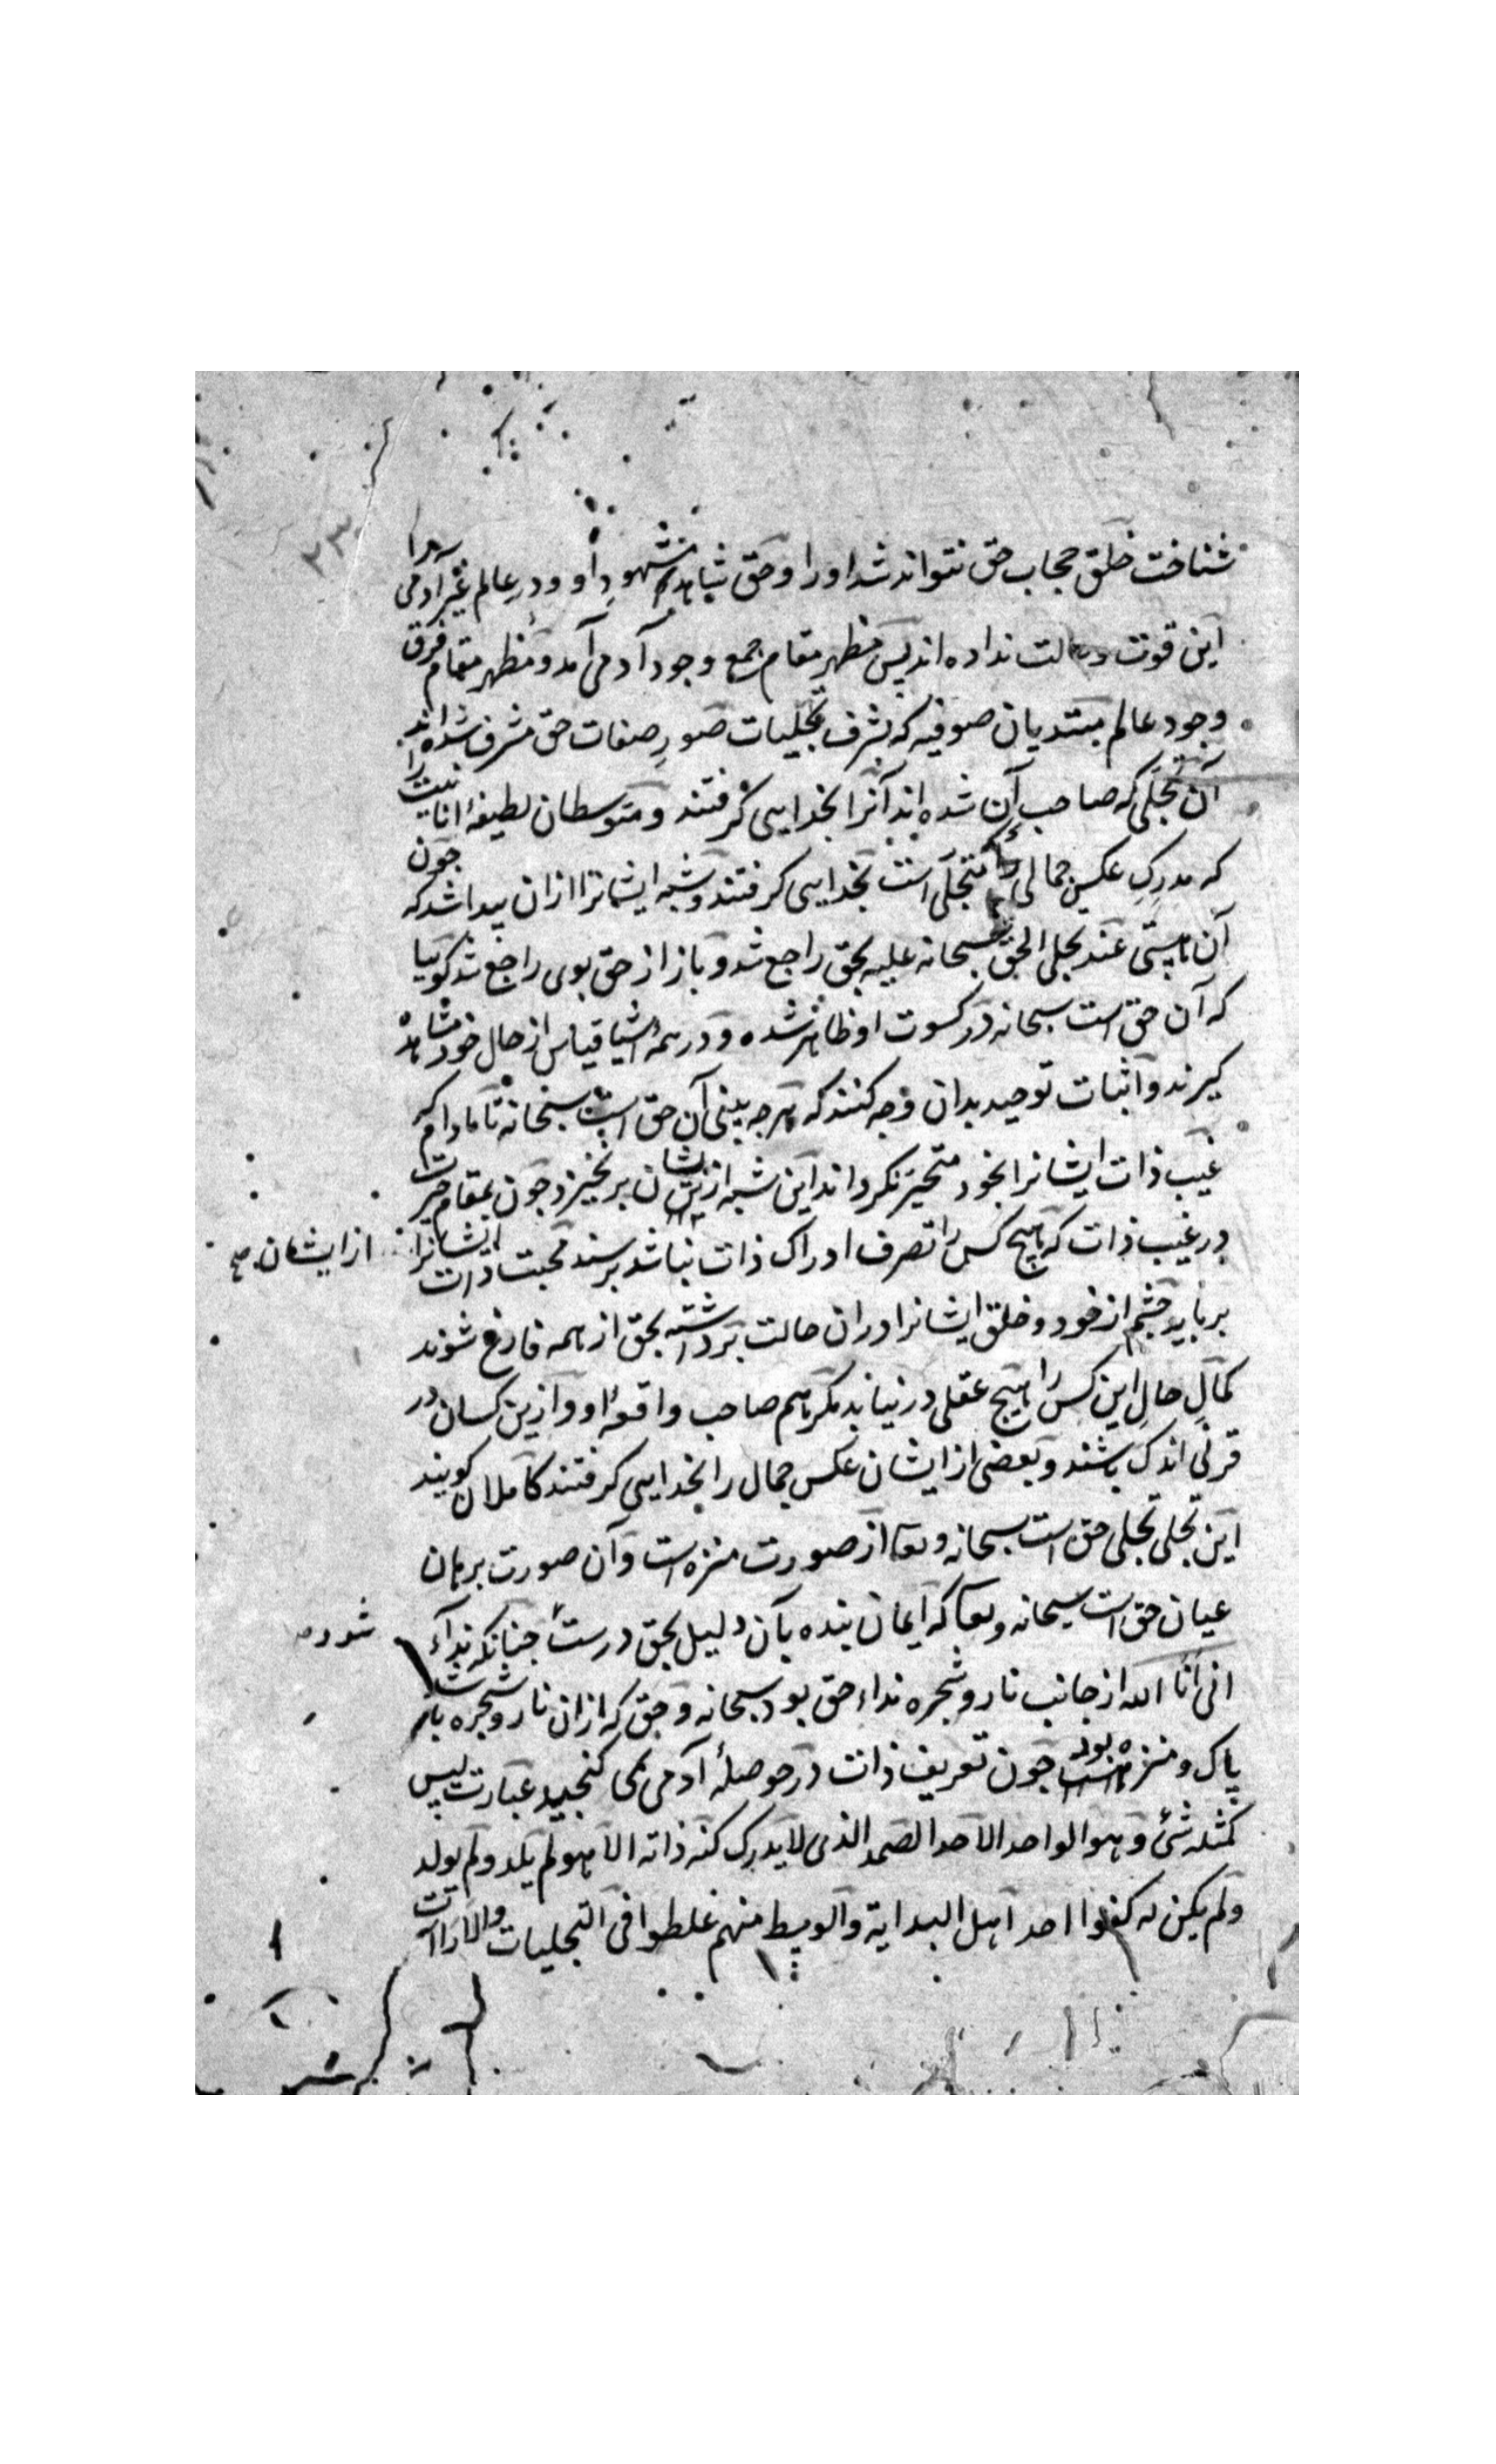 ۲۳
شناخت خلق حجاب حق نتواند شد او را و حق شاهد مشهود او و در عالم غیر آدمی را
این قوت و حالت نداده اند پس مظهر مقام جمع وجود آدمی آمد و مظهر مقام فرق
وجود عالم مبتدیان صوفیه که بشرف تجلیات صور صفات حق مشرف شده اند
آن تجلی که صاحب آن شده اند آنرا بخدایی گرفتند و متوسطان لطیفهٔ انانیت را
که مدرک عکس جمالی متجلی است بخدایی گرفتند و شبه ایشانرا ازان پیدا شد که چون
آن هستی عند تجلی الحق سبحانه علیه بحق راجع شد و باز از حق بوی راجع شد گوییا
که آن حق است سبحانه در کسوت او ظاهر شده و در همهٔ اشیا قیاس از حال خود مشاهده
گیرند و اثبات توحید بدان وجه کنند که هرچه بینی آن حق است سبحانه تا مادام که
غیب ذات ایشانرا بخود متحیر نگرداند این شبه ازیشان برنخیزد چون بمقام حیرت
در غیب ذات که هیچ کس را تصرف ادراک ذات نباشد برسند محبت ذات ایشانرا
از ایشان صح
برباید چشم از خود و خلق ایشانرا دران حالت برداشته بحق از همه فارغ شوند
کمال حال این کس را هیچ عقلی درنیابد مگر هم صاحب واقعهٔ او و ازین کسان در
قرنی اندک باشند و بعضی از ایشان عکس جمال را بخدایی گرفتند کاملان گویند
این تجلی تجلی حق است سبحانه و تعا از صورت منزه است و آن صورت برهان
عیان حق است سبحانه و تعا که ایمان بنده بآن دلیل بحق درست چنانکه نداء
شود
انی انا الله از جانب نار و شجره نداء حق بود سبحانه و حق که ازان نار و شجره باشد
پاک و منزه بود چون تعریف ذات در حوصلهٔ آدمی نمی گنجید عبارت لیس
کمثله شئ و هو الواحد الاحد الصمد الذی لا یدرک کنه ذاته الا هو لم یلد و لم یولد
و لم یکن له کفوا احد اهل البدایة و الوسط منهم غلطوا فی التجلیات و الارادات